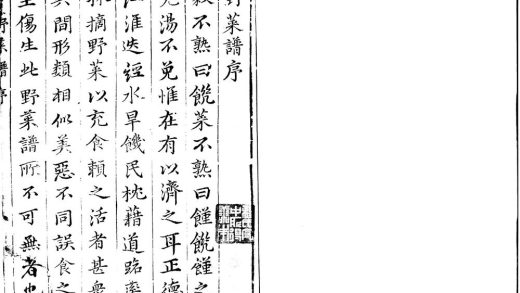 野菜譜序
穀不熟曰饑菜不熟曰饉饑饉之
堯湯不免惟在有以濟之耳正德
江淮迭經水旱饑民枕藉道路率
採摘野菜以充食賴之活者甚衆
其間形類相似美惡不同誤食之
至傷生此野菜譜所不可無者也
菜譜序